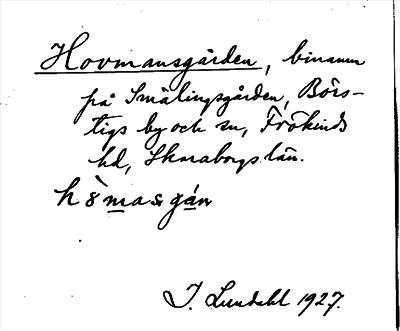 Hovmansgården, binamn
på Smålingsgården, Börs-
tigs by och sn, Frökinds
hd, Skaraborgs län.
h8̀masgán
I. Lundahl 1927.